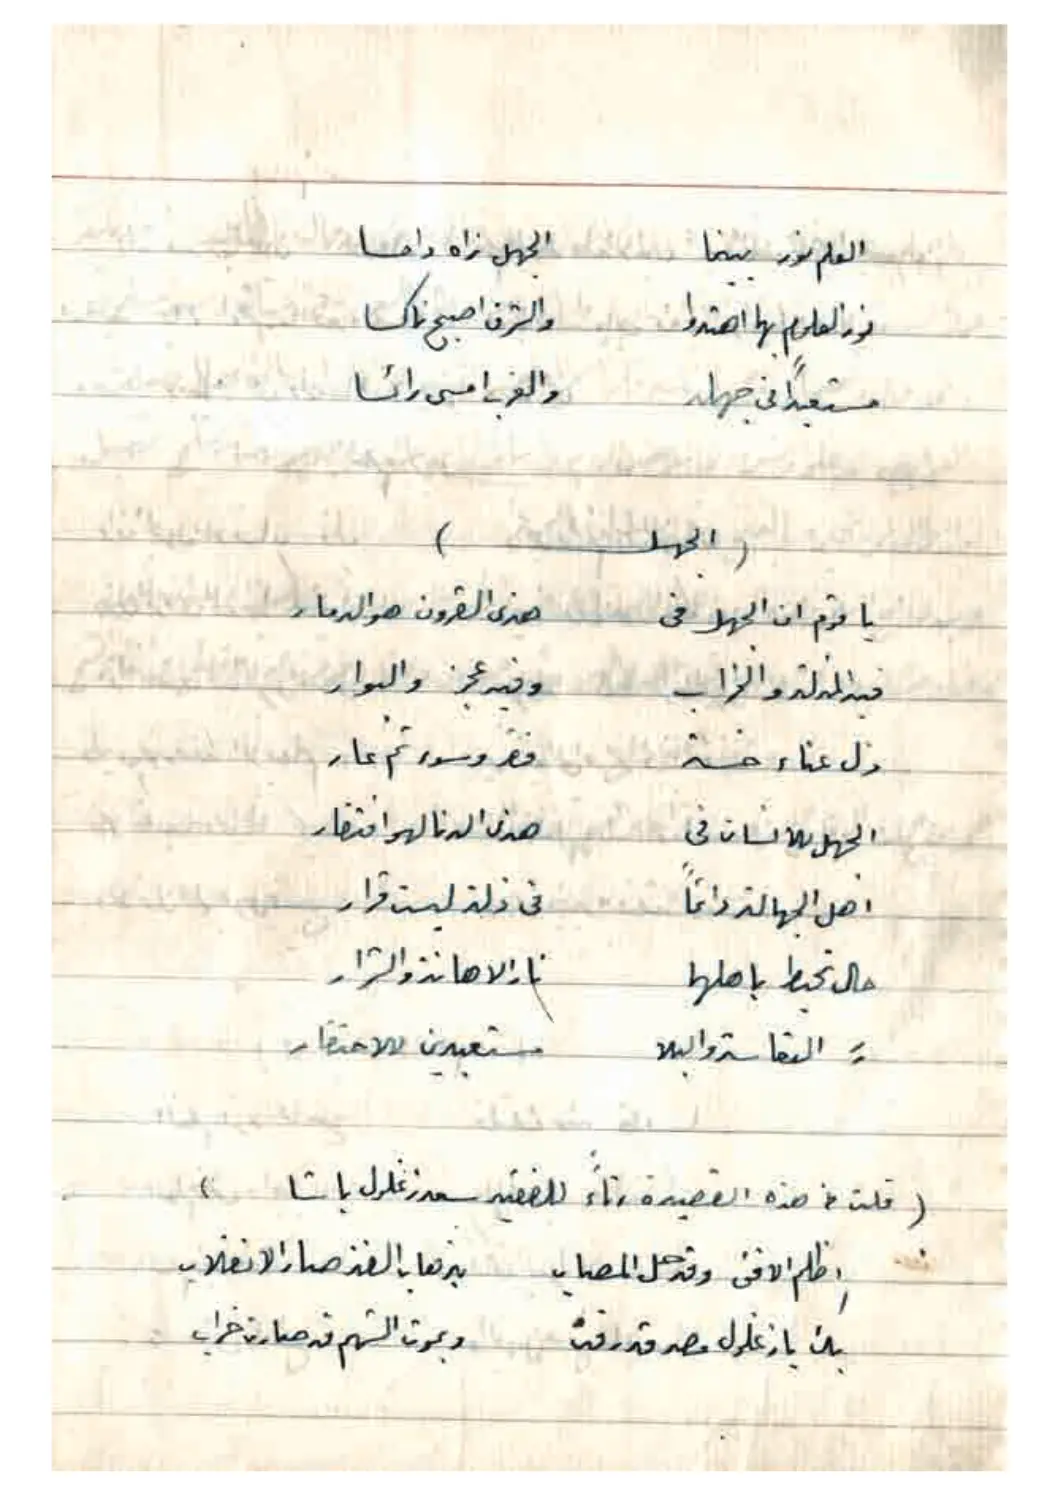 العلم نور بينما الجهل نراه دامسا
نور العلوم بها اهتدوا والشرق اصبح ناكسا
مستعبداً في جهله والغرب امسى رائسا
( الجهل )
يا قوم ان الجهل في هذى القرون هو الدمار
فيه المذلة والخراب وفيه عجز والبوار
ذل عناء خسة فقر وسوء ثم عار
الجهل للانسان في هذى الدنا لهو افتقار
اهل الجهالة دائماً في ذلة ليست قرار
حال تحيط باهلها نار الاهانة والشرار
التعاسة والبلا مستعبدين للاحتقار
( قلت في هذه القصيدة رثاءً للفقيد سعد زغلول باشا )
اظلم الافق وقد حل المصاب بذهاب الفذ صار الانقلاب
بك يا زغلول مصر قد رقت وبموت الشهم قد صارت خراب